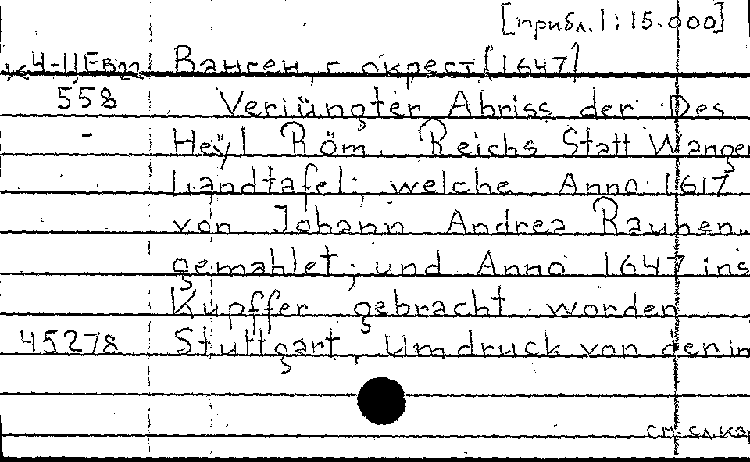 [прибл. 1:15.000]
К4-11Евр Ванген, г. окрест. (1647)
558 Verjüngter Abriss der Des
- Heyl Röm. Reichs Statt Wangen
Landtafel; welche Anno 1617
von Johann Andrea Rauhen
gemahlet; und Anno 1647 ins
Kupffer gebracht worden
45278 Stuttgart, Umdruck von den in
см. сл. ка